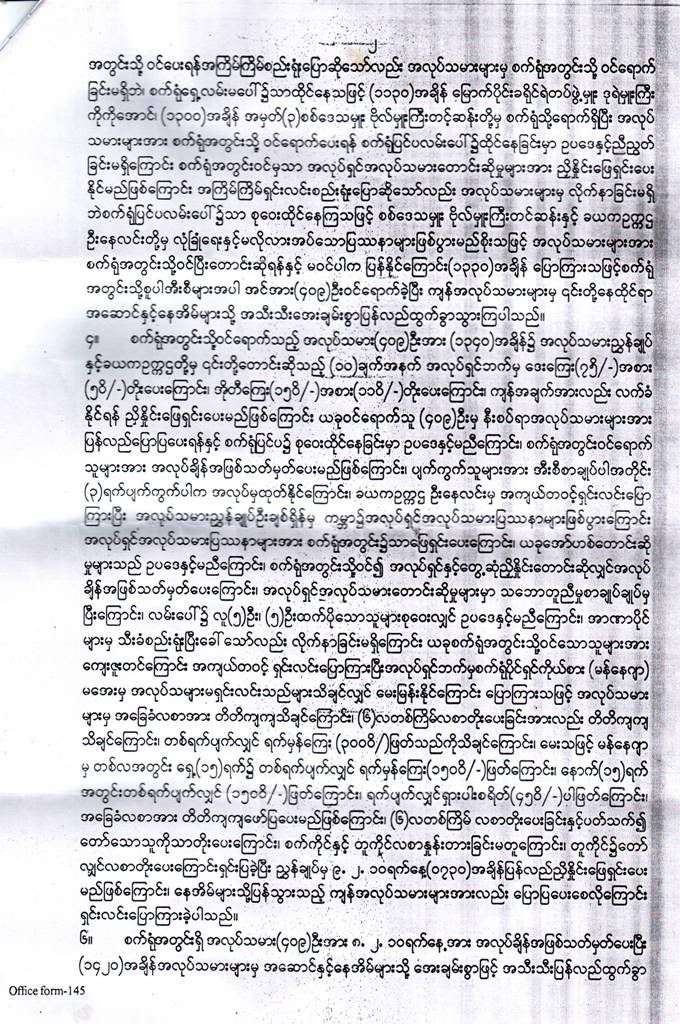 ၂
အတွင်းသို့ ဝင်ပေးရန်အကြိမ်ကြိမ်စည်းရုံးပြောဆိုသော်လည်း အလုပ်သမားများမှ စက်ရုံအတွင်းသို့ ဝင်ရောက်
ခြင်းမရှိဘဲ၊ စက်ရုံရှေ့လမ်းမပေါ်၌သာထိုင်နေသဖြင့် (၁၁၃၀)အချိန် မြောက်ပိုင်းခရိုင်ရဲတပ်ဖွဲ့မှူး ဒုရဲမှူးကြီး
ကိုကိုအောင်၊ (၁၃၀၀)အချိန် အမှတ်(၃)စစ်ဒေသမှူး ဗိုလ်မှူးကြီးတင့်ဆန်းတို့မှ စက်ရုံသို့ရောက်ရှိပြီး အလုပ်
သမားများအား စက်ရုံအတွင်းသို့ ဝင်ရောက်ပေးရန် စက်ရုံပြင်ပလမ်းပေါ်၌ထိုင်နေခြင်းမှာ ဥပဒေနှင့်ညီညွတ်
ခြင်းမရှိကြောင်း စက်ရုံအတွင်းဝင်မှသာ အလုပ်ရှင်အလုပ်သမားတောင်းဆိုမှုများအား ညှိနှိုင်းဖြေရှင်းပေး
နိုင်မည်ဖြစ်ကြောင်း အကြိမ်ကြိမ်ရှင်းလင်းစည်းရုံးပြောဆိုသော်လည်း အလုပ်သမားများမှ လိုက်နာခြင်းမရှိ
ဘဲစက်ရုံပြင်ပလမ်းပေါ်၌သာ စုဝေးထိုင်နေကြသဖြင့် စစ်ဒေသမှူး ဗိုလ်မှူးကြီးတင်ဆန်းနှင့် ခယကဥက္ကဌ
ဦးနေလင်းတို့မှ လုံခြုံရေးနှင့်မလိုလားအပ်သောပြဿနာများဖြစ်ပွားမည်စိုးသဖြင့် အလုပ်သမားများအား
စက်ရုံအတွင်းသို့ဝင်ပြီးတောင်းဆိုရန်နှင့် မဝင်ပါက ပြန်နိုင်ကြောင်း(၁၃၃၀)အချိန် ပြောကြားသဖြင့်စက်ရုံ
အတွင်းသို့စူပါအီးစီများအပါ အင်အား(၄၀၉)ဦးဝင်ရောက်ခဲ့ပြီး ကျန်အလုပ်သမားများမှ ၎င်းတို့နေထိုင်ရာ
အဆောင်နှင့်နေအိမ်များသို့ အသီးသီးအေးချမ်းစွာပြန်လည်ထွက်ခွာသွားကြပါသည်။
၄။ စက်ရုံအတွင်းသို့ဝင်ရောက်သည့် အလုပ်သမား(၄၀၉)ဦးအား (၁၃၄၀)အချိန်၌ အလုပ်သမားညွှန်ချုပ်
နှင့်ခယကဥက္ကဌတို့မှ ၎င်းတို့တောင်းဆိုသည့် (၁၁)ချက်အနက် အလုပ်ရှင်ဘက်မှ ဒေးကြေး(၇ဝိ/-)အစား
(၅ဝိ/-)တိုးပေးကြောင်း၊ အိုတီကြေး(၁၅ဝိ/-)အစား(၁၁ဝိ/-)တိုးပေးကြောင်း၊ ကျန်အချက်အားလည်း လက်ခံ
နိုင်ရန် ညှိနှိုင်းဖြေရှင်းပေးမည်ဖြစ်ကြောင်း ယခုဝင်ရောက်သူ (၄၀၉)ဦးမှ နီးစပ်ရာအလုပ်သမားများအား
ပြန်လည်ပြောပြပေးရန်နှင့် စက်ရုံပြင်ပ၌ စုဝေးထိုင်နေခြင်းမှာ ဥပဒေနှင့်မညီကြောင်း၊ စက်ရုံအတွင်းဝင်ရောက်
သူများအား အလုပ်ချိန်အဖြစ်သတ်မှတ်ပေးမည်ဖြစ်ကြောင်း၊ ပျက်ကွက်သူများအား အီးစီစာချုပ်ပါအတိုင်း
(၃)ရက်ပျက်ကွက်ပါက အလုပ်မှထုတ်နိုင်ကြောင်း၊ ခယကဥက္ကဌ ဦးနေလင်းမှ အကျယ်တဝင့်ရှင်းလင်းပြော
ကြားပြီး အလုပ်သမားညွှန်ချုပ်ဦးချစ်ရှိန်မှ ကမ္ဘာ၌အလုပ်ရှင်အလုပ်သမားပြဿနာများဖြစ်ပွားကြောင်း
အလုပ်ရှင်အလုပ်သမားပြဿနာများအား စက်ရုံအတွင်း၌သာဖြေရှင်းပေးကြောင်း၊ ယခုအော်ဟစ်တောင်းဆို
မှုများသည် ဥပဒေနှင့်မညီကြောင်း၊ စက်ရုံအတွင်းသို့ဝင်၍ အလုပ်ရှင်နှင့်တွေ့ဆုံညှိနှိုင်းတောင်းဆိုလျှင်အလုပ်
ချိန်အဖြစ်သတ်မှတ်ပေးကြောင်း၊ အလုပ်ရှင်အလုပ်သမားတောင်းဆိုမှုများမှာ သဘောတူညီမှုစာချုပ်ချုပ်မှ
ပြီးကြောင်း၊ လမ်းပေါ်၌ လူ(၅)ဦး၊ (၅)ဦးထက်ပိုသောသူများစုဝေးလျှင် ဥပဒေနှင့်မညီကြောင်း၊ အာဏာပိုင်
များမှ သီးခံစည်းရုံးပြီးခေါ်သော်လည်း လိုက်နာခြင်းမရှိကြောင်း ယခုစက်ရုံအတွင်းသို့ဝင်သောသူများအား
ကျေးဇူးတင်ကြောင်း အကျယ်တဝင့် ရှင်းလင်းပြောကြားပြီးအလုပ်ရှင်ဘက်မှစက်ရုံပိုင်ရှင်ကိုယ်စား (မန်နေဂျာ)
မအေးမှ အလုပ်သမားများမရှင်းလင်းသည်များသိချင်လျှင် မေးမြန်းနိုင်ကြောင်း ပြောကြားသဖြင့် အလုပ်သမား
များမှ အခြေခံလစာအား တိတိကျကျသိချင်ကြောင်း၊ (၆)လတစ်ကြိမ်လစာတိုးပေးခြင်းအားလည်း တိတိကျကျ
သိချင်ကြောင်း၊ တစ်ရက်ပျက်လျှင် ရက်မှန်ကြေး (၃၀၀ဝိ/)ဖြတ်သည်ကိုသိချင်ကြောင်း၊ မေးသဖြင့် မန်နေဂျာ
မှ တစ်လအတွင်း ရှေ့(၁၅)ရက်၌ တစ်ရက်ပျက်လျှင် ရက်မှန်ကြေး(၁၅၀ဝိ/-)ဖြတ်ကြောင်း၊ နောက်(၁၅)ရက်
အတွင်းတစ်ရက်ပျက်လျှင် (၁၅၀ဝိ/-)ဖြတ်ကြောင်း၊ ရက်ပျက်လျှင်ရှားပါးစရိတ်(၄၅ဝိ/-)ပါဖြတ်ကြောင်း၊
အခြေခံလစာအား တိတိကျကျဖော်ပြပေးမည်ဖြစ်ကြောင်း၊ (၆)လတစ်ကြိမ် လစာတိုးပေးခြင်းနှင့်ပတ်သက်၍
တော်သောသူကိုသာတိုးပေးကြောင်း၊ စက်ကိုင်နှင့် တူကိုင်လစာနှုန်းထားခြင်းမတူကြောင်း၊ တူကိုင်၌တော်
လျှင်လစာတိုးပေးကြောင်းရှင်းပြခဲ့ပြီး ညွှန်ချုပ်မှ ၉. ၂. ၁၀ရက်နေ့(၀၇၃၀)အချိန်ပြန်လည်ညှိနှိုင်းဖြေရှင်းပေး
မည်ဖြစ်ကြောင်း၊ နေအိမ်များသို့ပြန်သွားသည့် ကျန်အလုပ်သမားများအားလည်း ပြောပြပေးစေလိုကြောင်း
ရှင်းလင်းပြောကြားခဲ့ပါသည်။
၆။ စက်ရုံအတွင်းရှိ အလုပ်သမား(၄၀၉)ဦးအား ၈. ၂. ၁၀ရက်နေ့အား အလုပ်ချိန်အဖြစ်သတ်မှတ်ပေးပြီး
(၁၄၂၀)အချိန်အလုပ်သမားများမှ အဆောင်နှင့်နေအိမ်များသို့ အေးချမ်းစွာဖြင့် အသီးသီးပြန်လည်ထွက်ခွာ
Office form-145